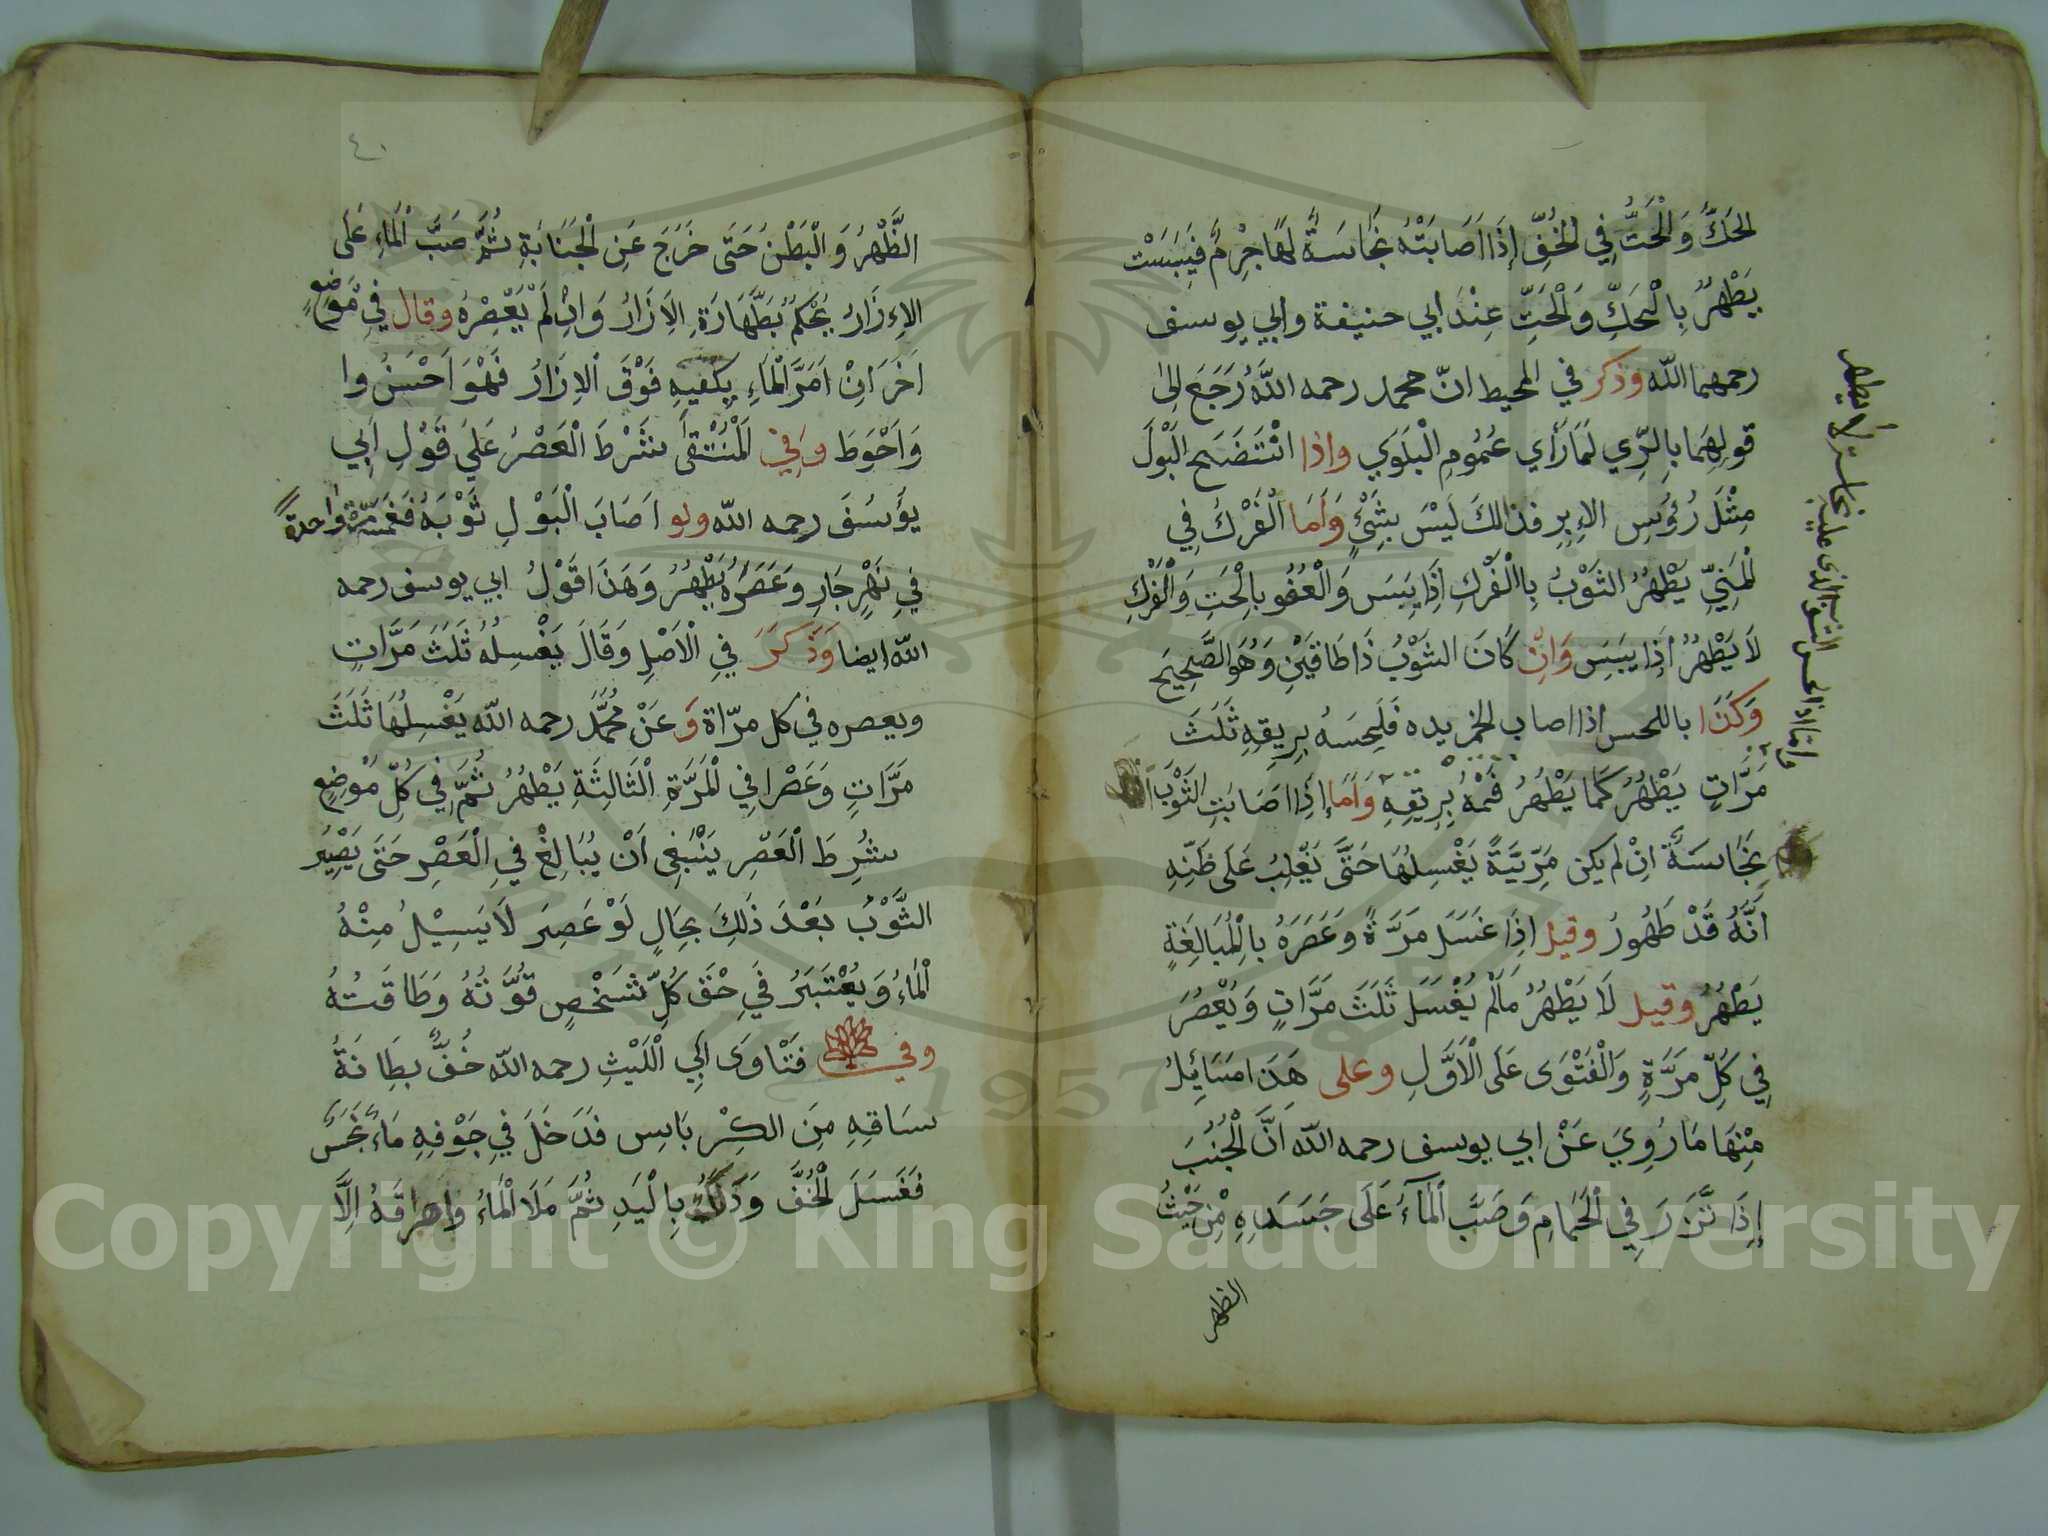 الحَكُّ وَالْحَتُّ فِي الخُفِّ إِذَا اَصَابَتْهُ نَجَاسَةٌ لهَا جِرْمٌ فَيَبِسَتْ
يَطْهُرُ بِالْحَكِّ وَالْحَتِّ عِنْدَ ابي حنيفة وابي يوسف
رحمهما اللّه وذكر في المحيط انّ محمد رحمه اللّه رَجَعَ اِلىٰ
قولِهِمَا بِالرَّيِ لَمَّا رَأي عُمُومِ الْبَلْوَي واذا انْتَضَحَ الْبَوْلَ
مِثْلَ رُؤُسِ الاِبِرِ فذالكَ لَيْسَ بِشَيْءٍ وَاَمَا الْفَرْكُ فِي
الْمَنِيِّ يَطْهُرُ الثَوْبُ بِاالْفَرْكِ اِذَا يَبِسَ وَالْعُضُو بالْحَتِ وَالْفَرْكِ
لَا يَطْهُرُ اِذَا يَبِسَ وَاِنْ كَانَ الثَوْبُ ذَا طَاقَيْنِ وَهُوَ الصَّحِيحَ
وَكَذَا باللحس اذا اصاب الخمر يده فَلَحِسَهُ بِرِيقِهِ ثَلَثَ
مَرَّاتٍ يَطْهُرُ كَمَا يَطْهُرُ فَمُهُ بِرِيقِهِ وَاَمَا إِذَا اصَابَتِ الثَوْبَ
نَجَاسَةٌ اِنْ لم يكن مَرْئِيَّةً يَغْسِلُهَا حَتَّى يَغْلِبُ عَلَى ظَنِّهِ
اَنَّهُ قَدْ طَهُورُ وقيل اِذَا غَسَلَ مَرَّةً وَعَصَرَهُ بِالْمُبَالِغَةِ
يَطْهُرُ وقيل لَا يَطْهُرُ مَالَمْ يُغْسَلَ ثَلَثَ مَرَّاتٍ وَيُعْصُرَ
فِي كُلِّ مَرَّةٍ وَالْفَتْوَى عَلَى الْاَوَّلِ وعلى هَذَا مَسَائِلُ
مِنْهَا مَا رُوِيَ عَنْ ابي يوسف رحمه اللّه اَنَّ الْجُنُبَ
إِذَا تَّزَرَ فِي الْحَمَّامِ وَصَبَّ الْمَآءَ عَلَى جَسَدِهِ مِنْ حَيْثُ
الظهر
وامّا اذا لحس الثوب الذى عليه نجاسة لا يطهر
٤٠
الظَّهْرُ وَالْبَطْنُ حَتَى خَرَجَ عَنِ الْجَنَابَةِ ثُمَّ صَبَّ الْمَاءِ عَلَى
الاِءزَارُ يُحْكَمُ بَطَّهَارَةِ الِاَزَارُ وَاِنْ لَمْ يَعْصِرْهُ وقال فِي مَوْضِعٍ
اَخَرَ اِنْ اَمَرَّ الْمَاءِ بِكَفَّيْهِ فَوْقَ الْاِزَارُ فَهْوَ اَحْسَنُ وا
وَاَحْوَطَ وَفِي الْمُنْتَقَى شَرْطَ الْعَصْرُ عَلَي قَوْلِ اَبِي
يؤَسُفَ رحمه اللّه ولو اصَابَ الْبَوْلِ ثَوْبَهُ فَغَمَسَهُ مَرَّةً وَاحدةً
فِي نَهْرٍ جَارٍ وَعَصَرَهُ يَطْهُرُ وَهَذَا قَوْلُ ابي يوسف رحمه
اللّه ايضا وَذَكَرَ فِي الْاَصْلِ وَقَالَ يَغْسِلُهُ ثَلَثَ مَرَّاتٍ
ويعصره في كل مرّاة وَعَنْ مُحَمَّدَ رحمه اللّه يَغْسِلُهَا ثَلَثَ
مَرَّاتِ وَعَصْرا فِي الْمَرَّةِ الْثَالِثَةِ يَطْهُرُ ثُمَّ فِي كُلِّ مَوْضِعٍ
شُرِطَ الْعَصْرِ يَنْبَغِى اَنْ يُبَالِغْ فِي الْعَصْرِ حَتَى يَصِيْرَ
الثَّوْبُ بَعْدَ ذَلِكَ بِحَالٍ لَوْ عَصِرَ لَا يَسِيْلُ مِنْهُ
الْمَاءُ وَيُعْتَبَرُ فَيِ حْقِ كُلِّ شَخْصٍ قُوَّتُهُ وَطَاقَتُهُ
وفي فَتَاوَى اَبِي الْلَيْثِ رحمه اللّه خُفٌّ بِطَانَةُ
سَاقِهِ مِنَ الكِرْبَاسِ فَدَخَلَ فِي جَوْفِهِ مَاءٌ نَجَسٌ
فَغَسَلَ الْخُفَّ وَدَلَكَ بِالْيَدِ ثُمَّ مَلَا الْمَاءُ وَاَهراقَهُ اِلَّا
Copyright © King Saud University
1957